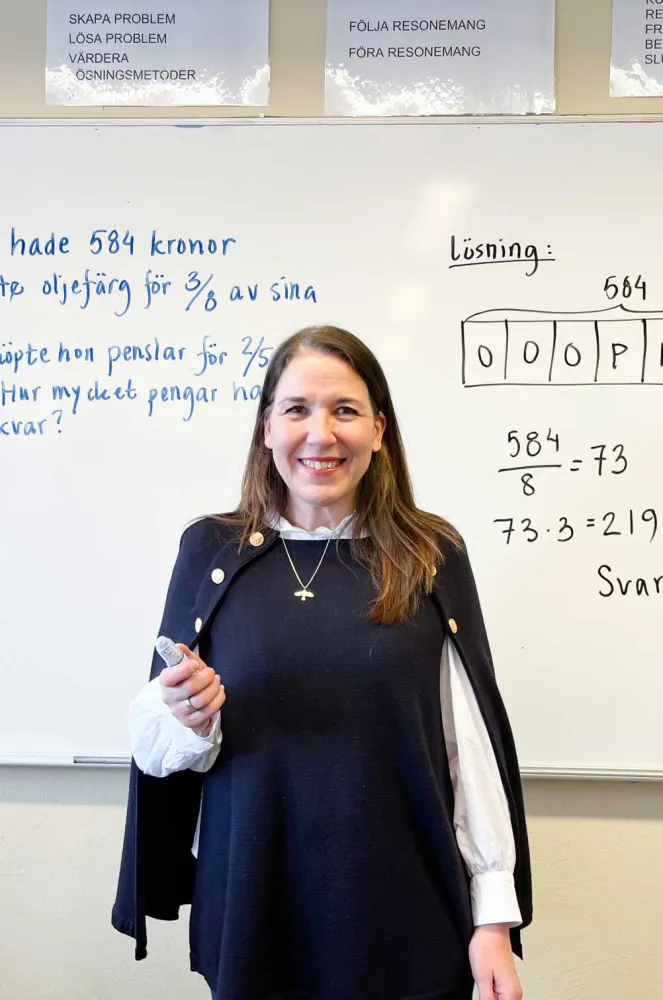 SKAPA PROBLEM
LÖSA PROBLEM
VÄRDERA
ÖSNINGSMETODER
FÖLJA RESONEMANG
FÖRA RESONEMANG
RE
FR
BE
SLU
hade 584 kronor
te oljefärg för 3/8 av sina
öpte hon penslar för 2/5
Hur mycket pengar ha
kvar?
Lösning:
584
O O O P
584/8 = 73
73·3 = 219
Svar